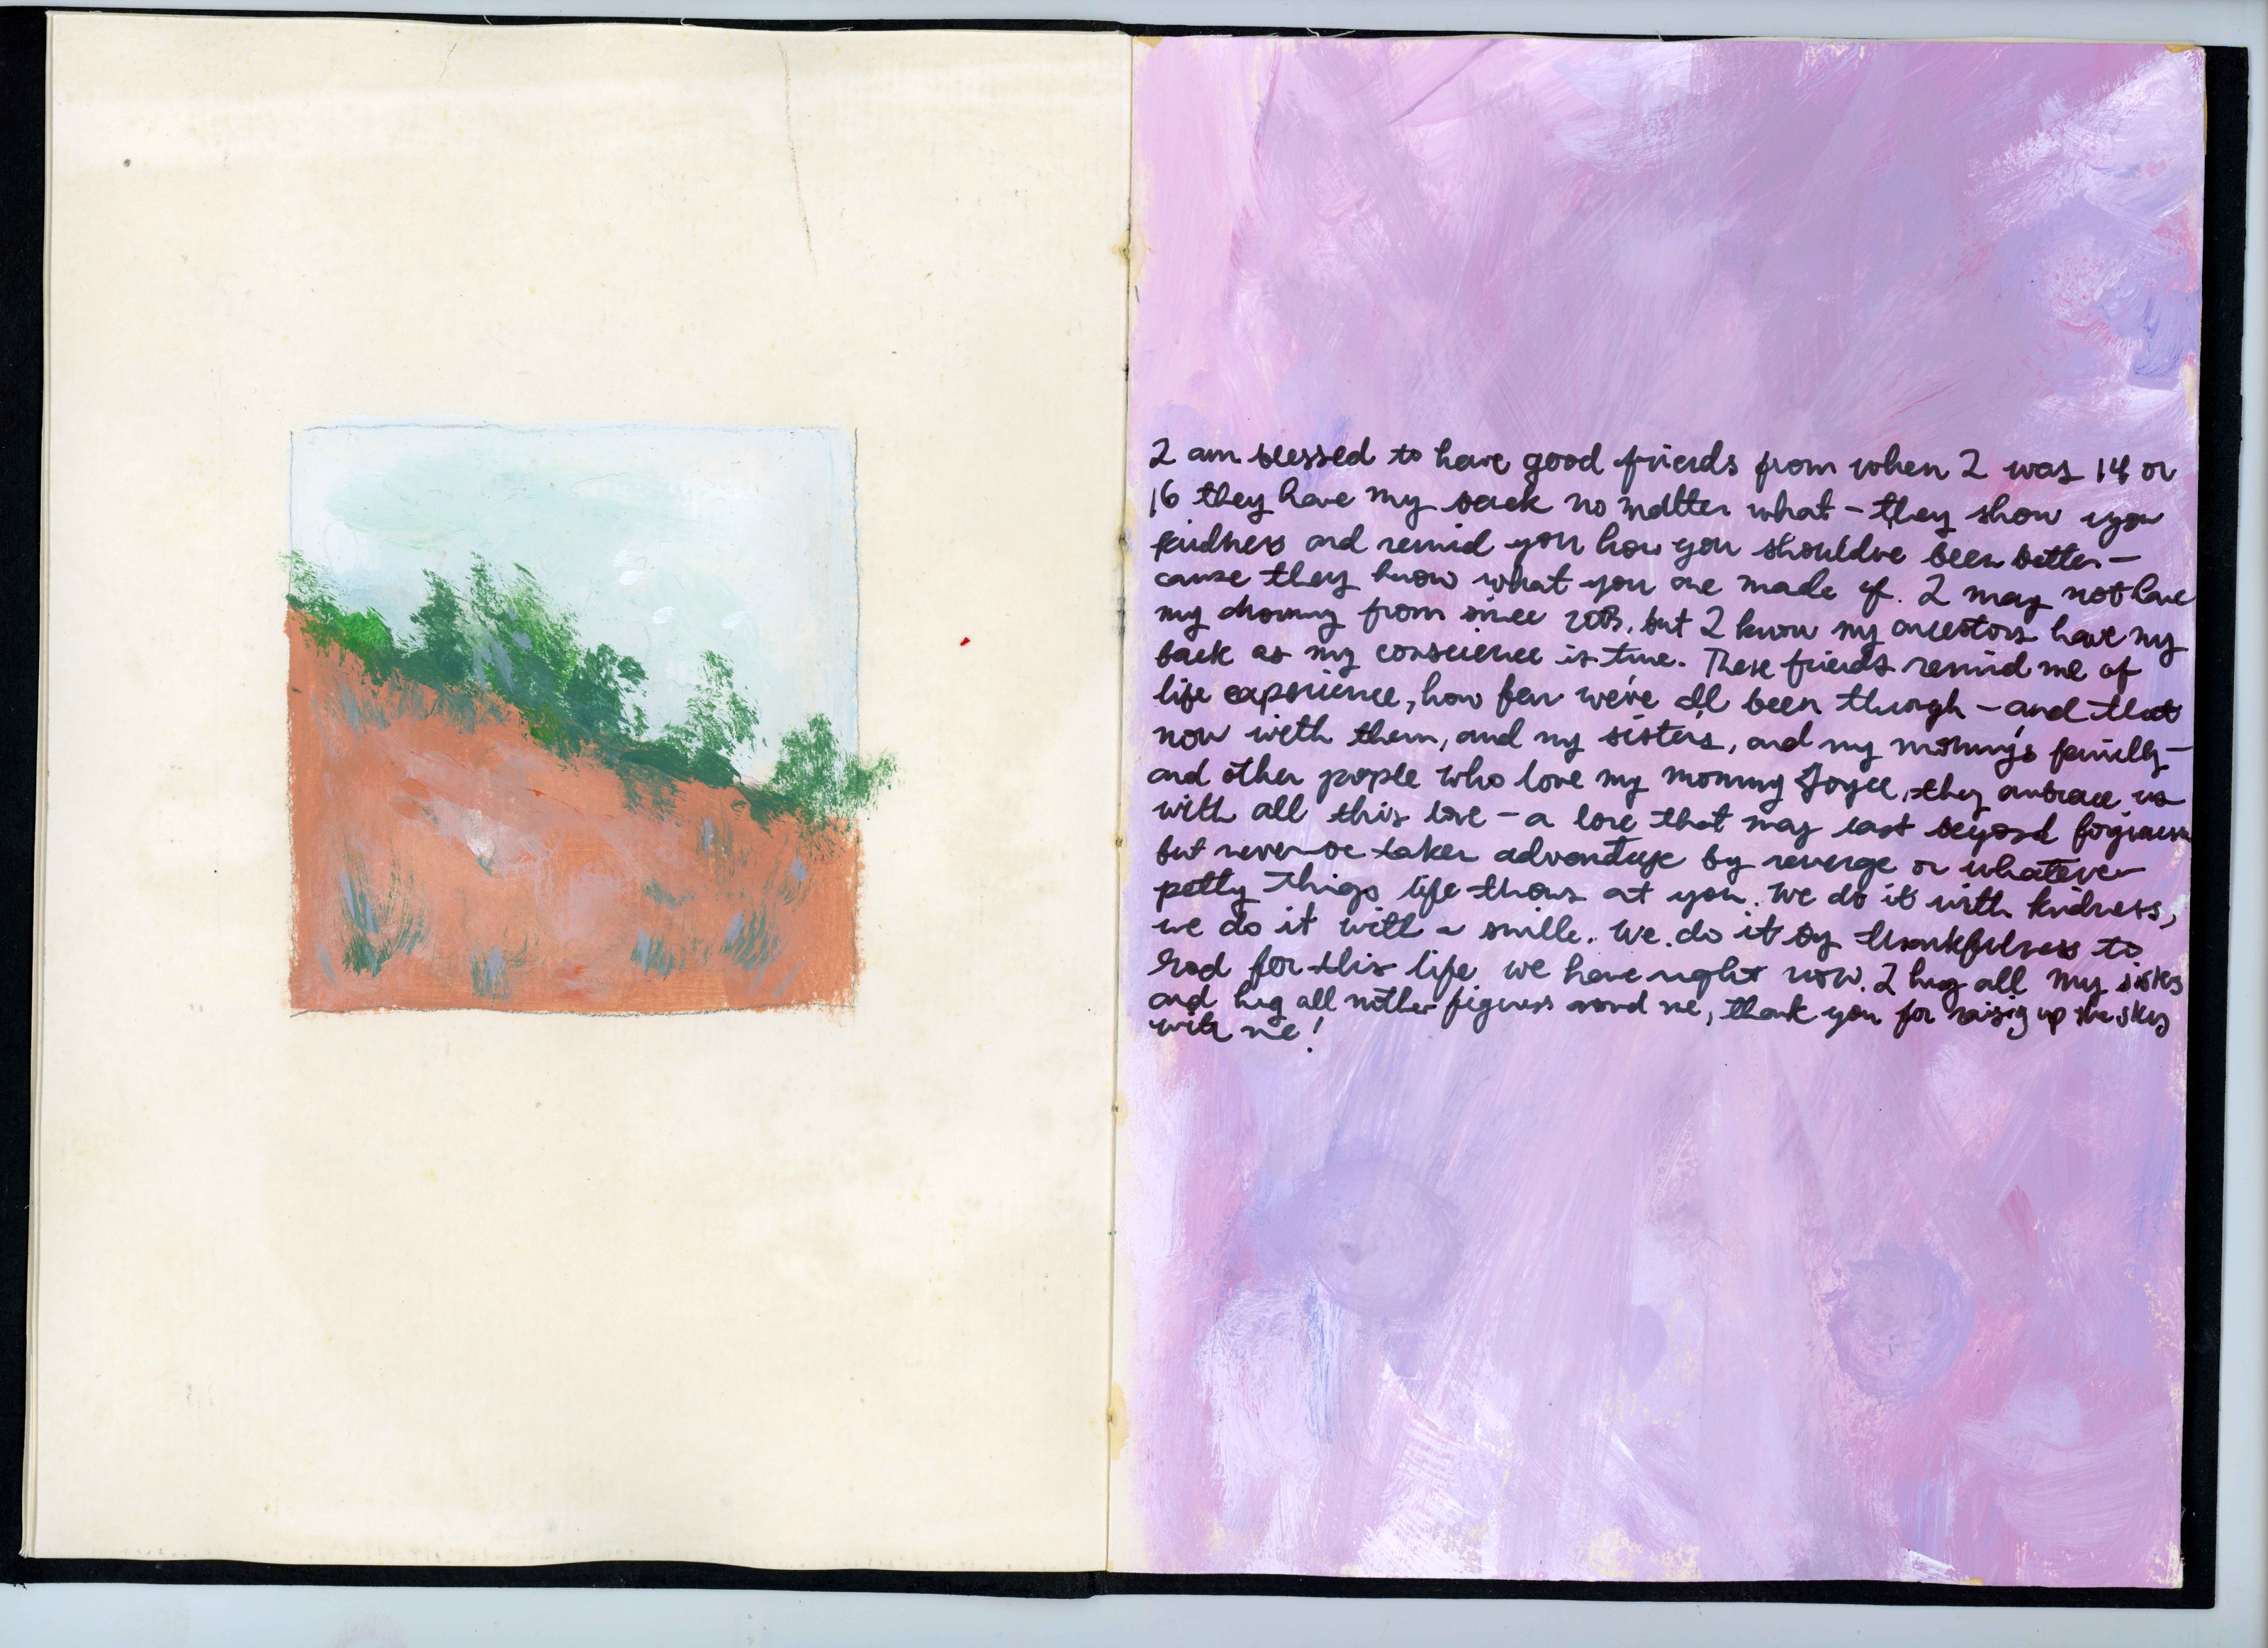 I am blessed to have good friends from when I was 14 or
16 they have my back no matter what - they show you
kindness and remind you how you should've been better -
cause they know what you are made of. I may not have
my mommy from since but I know my ancestors have my
back as my conscience is true. These friends remind me of
life experience, how far we've all been through - and that
now with them, and my sisters, and my mommy's family -
and other people who love my mommy Joyce, they embrace us
with all this love - a love that may last beyond forgiveness
but never be taken advantage by revenge or whatever
petty things life throws at you. We do it with kindness,
we do it with a smile. We do it by thankfulness to
God for this life we have right now. I hug all my sisters
and hug all mother figures around me, thank you for raising up the sky
with me!